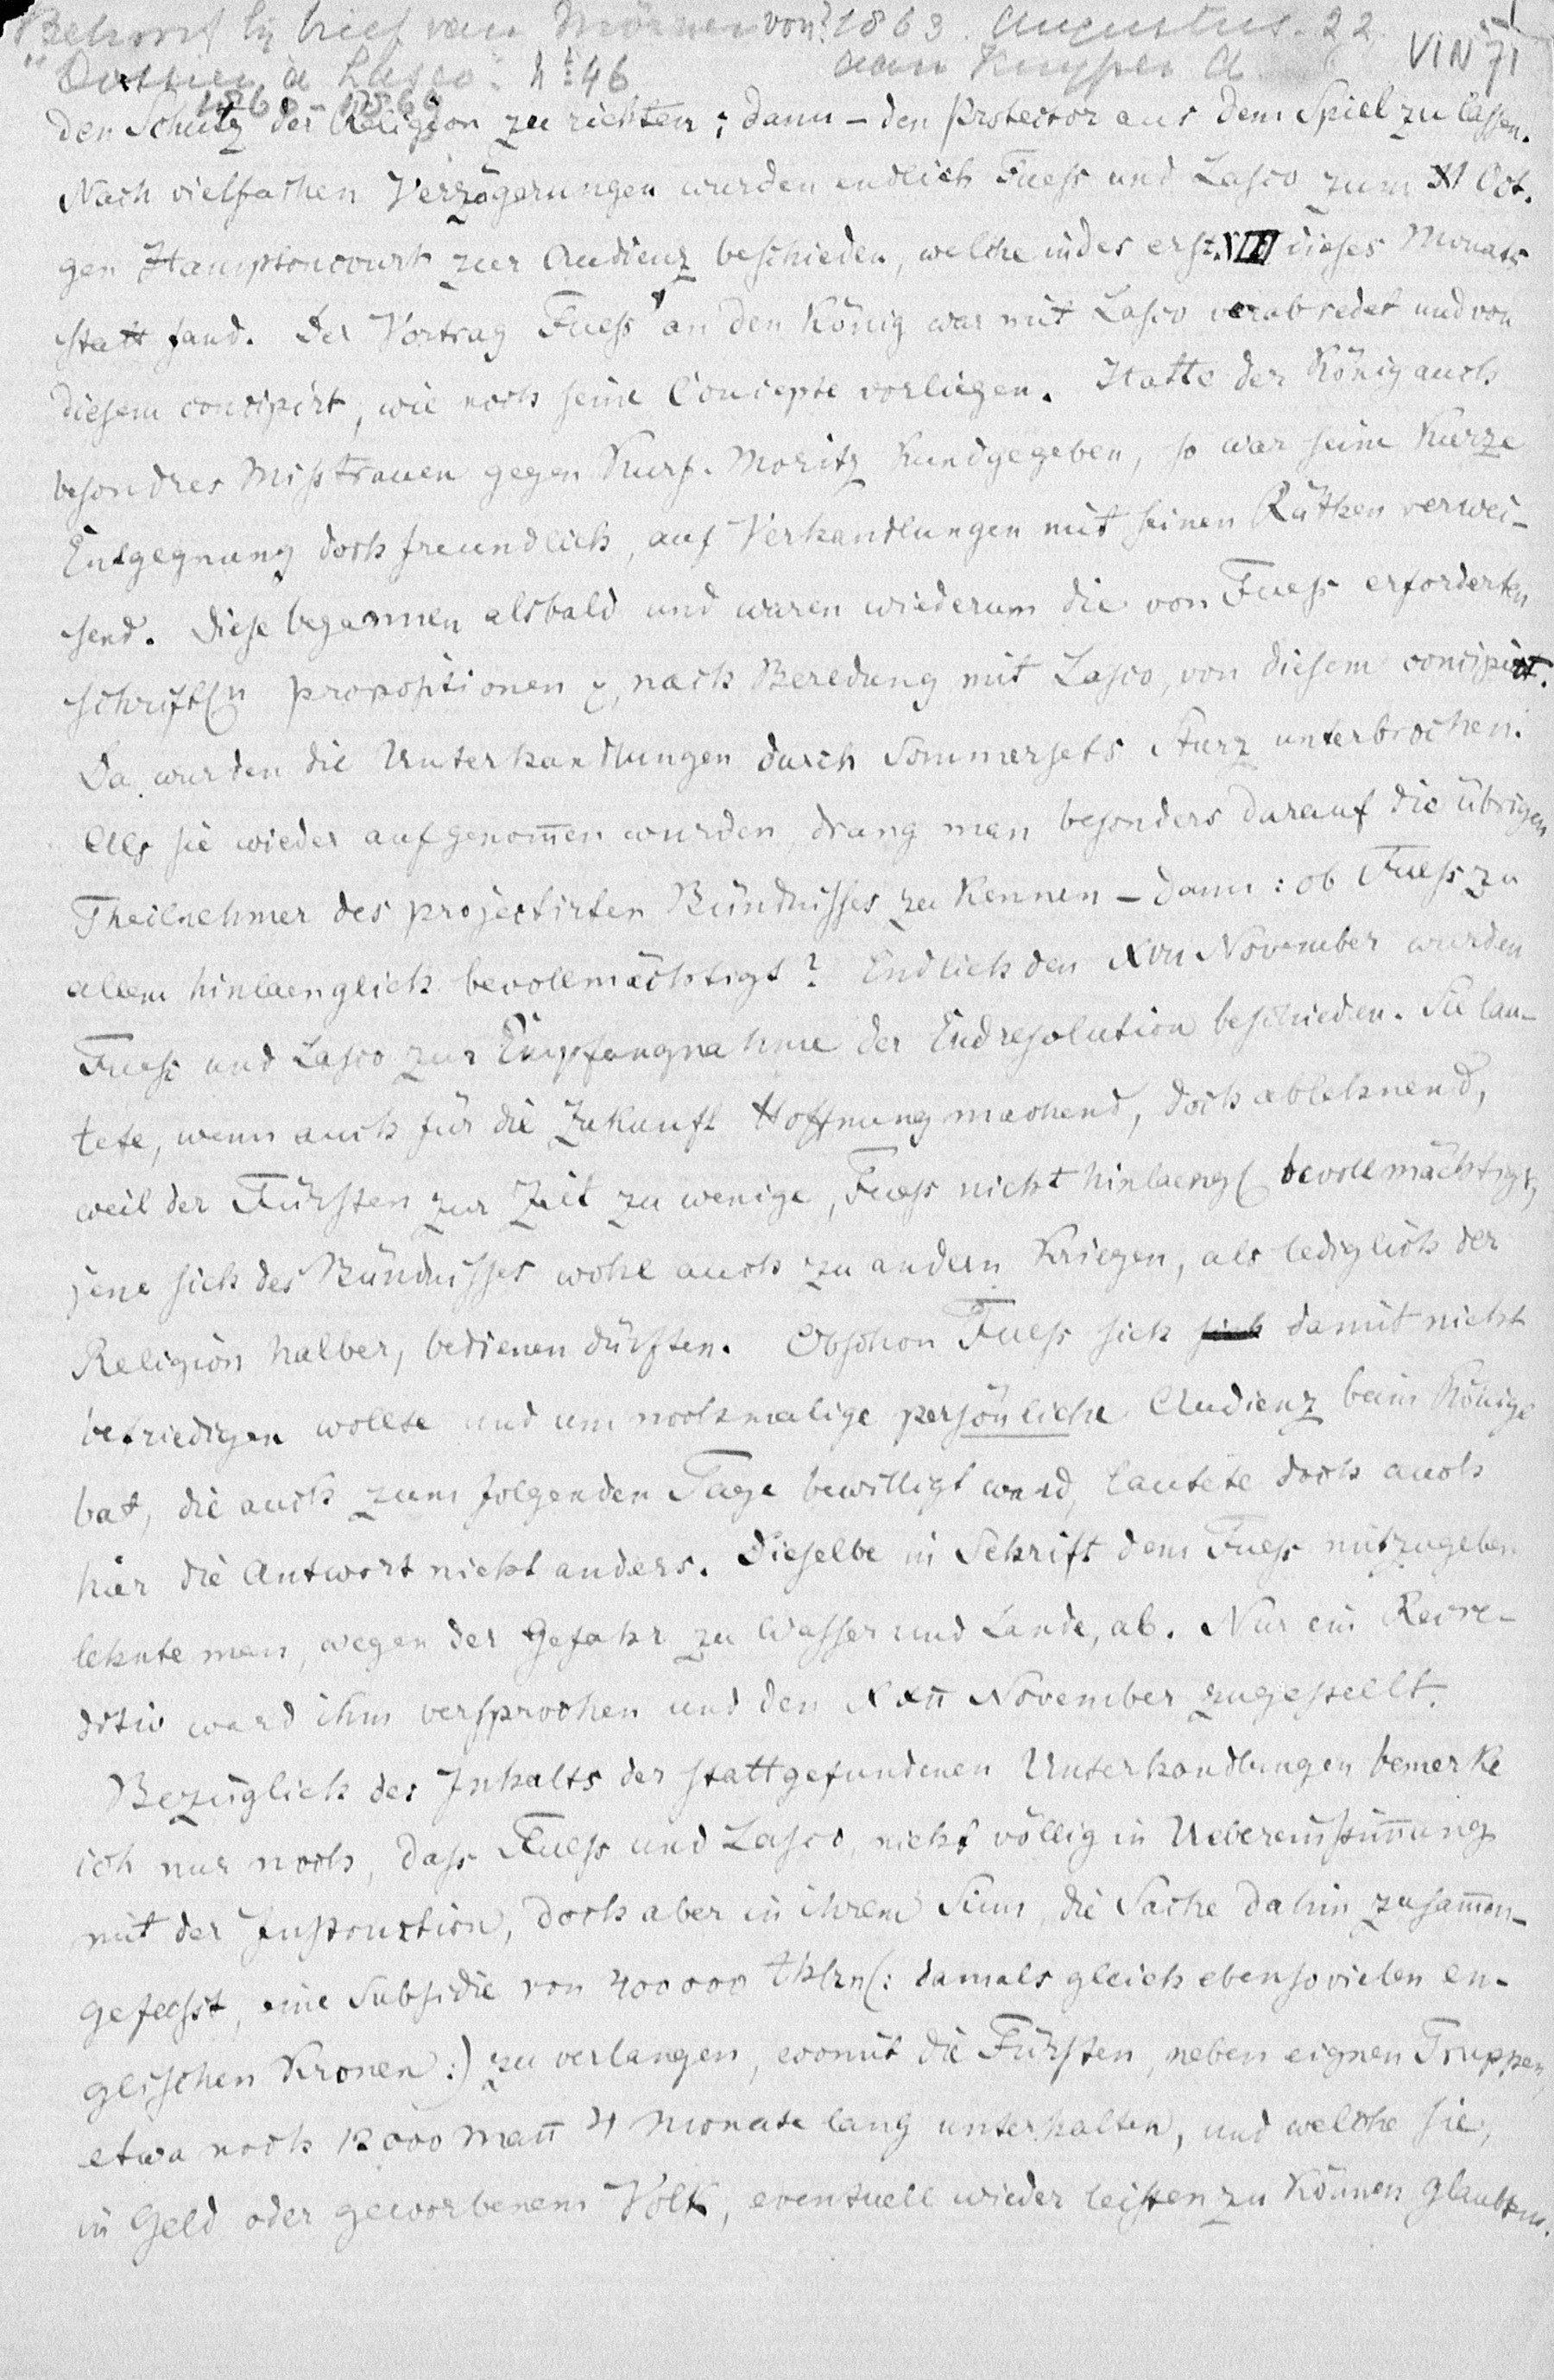 Behoort bij brief van Mörner von? 1863. Augustus. 22.
"Dossier a Lasco". Nº 46 aan Kuyper A VIN 71
1860-1866
den Schutz der Religion zu richten; dann – den Protector aus dem Spiel zu lassen.
Nach vielfachen Verzögerungen wurden endlich Fuess und Lasco zum XI Oct.
gen Hamptoncourt zur Audienz beschieden, welche indes erst XIII dieses Monats
statt fand. Der Vortrag Fuess' an den König war mit Lasco verabredet und von
diesem concipirt, wie noch seine Concepte vorliegen. Hatte der König auch
besondres Misstrauen gegen Kurf. Moritz kundgegeben, so war seine kurze
Entgegnung doch freundlich, auf Verhandlungen mit seinen Räthen verwei-
send. Diese begannen alsbald und waren wiederum die von Fuess erforderten
schriftln propositionen &, nach Beredung mit Lasco, von diesem concipirt.
Da wurden die Unterhandlungen durch Sommersets Sturz unterbrochen.
Als sie wieder aufgenom̄en wurden drang man besonders darauf die übrigen
Theilnehmer des projectirten Bündnisses zu kennen – dann: ob Fuess zu
allem hinlaenglich bevollmächtigt? Endlich den XVII November wurden
Fuess und Lasco zur Empfangnahme der Endresolution beschieden. Sie lau-
tete, wenn auch für die Zukunft Hoffnung machend, doch ablehnend,
weil der Fürsten zur Zeit zu wenige, Fuess nicht hinlaengl bevollmächtigt,
jene sich des Bündnisses wohl auch zu andern Kriegen, als lediglich der
Religion halber, bedienen dürften. Obschon Fuess sich sich damit nicht
befriedigen wollte und um nochmalige persönliche Audienz beim Könige
bat, die auch zum folgenden Tage bewilligt ward, lautete doch auch
hier die Antwort nicht anders. Dieselbe in Schrift dem Fuess mitzugeben
lehnte man, wegen der Gefahr zu Wasser und Lande, ab. Nur ein Recre-
ditiv ward ihm versprochen und den XXII November zugestellt.
Bezüglich des Inhalts der stattgefundenen Unterhandlungen bemerke
ich nur noch, dass Fuess und Lasco, nicht völlig in Uebereinstim̄ung
mit der Instruction, doch aber in ihrem Sinn, die Sache dahin zusam̄en-
gefasst, eine Subsidie von 400000 thlrn (: damals gleich ebensovielen en-
glischen Kronen :) zu verlangen, womit die Fürsten, neben eignen Truppen,
etwa noch 12000 Man̄ 4 Monate lang unterhalten, und welche sie,
in Geld oder geworbenem Volk, eventuell wieder leisten zu können glaubten.